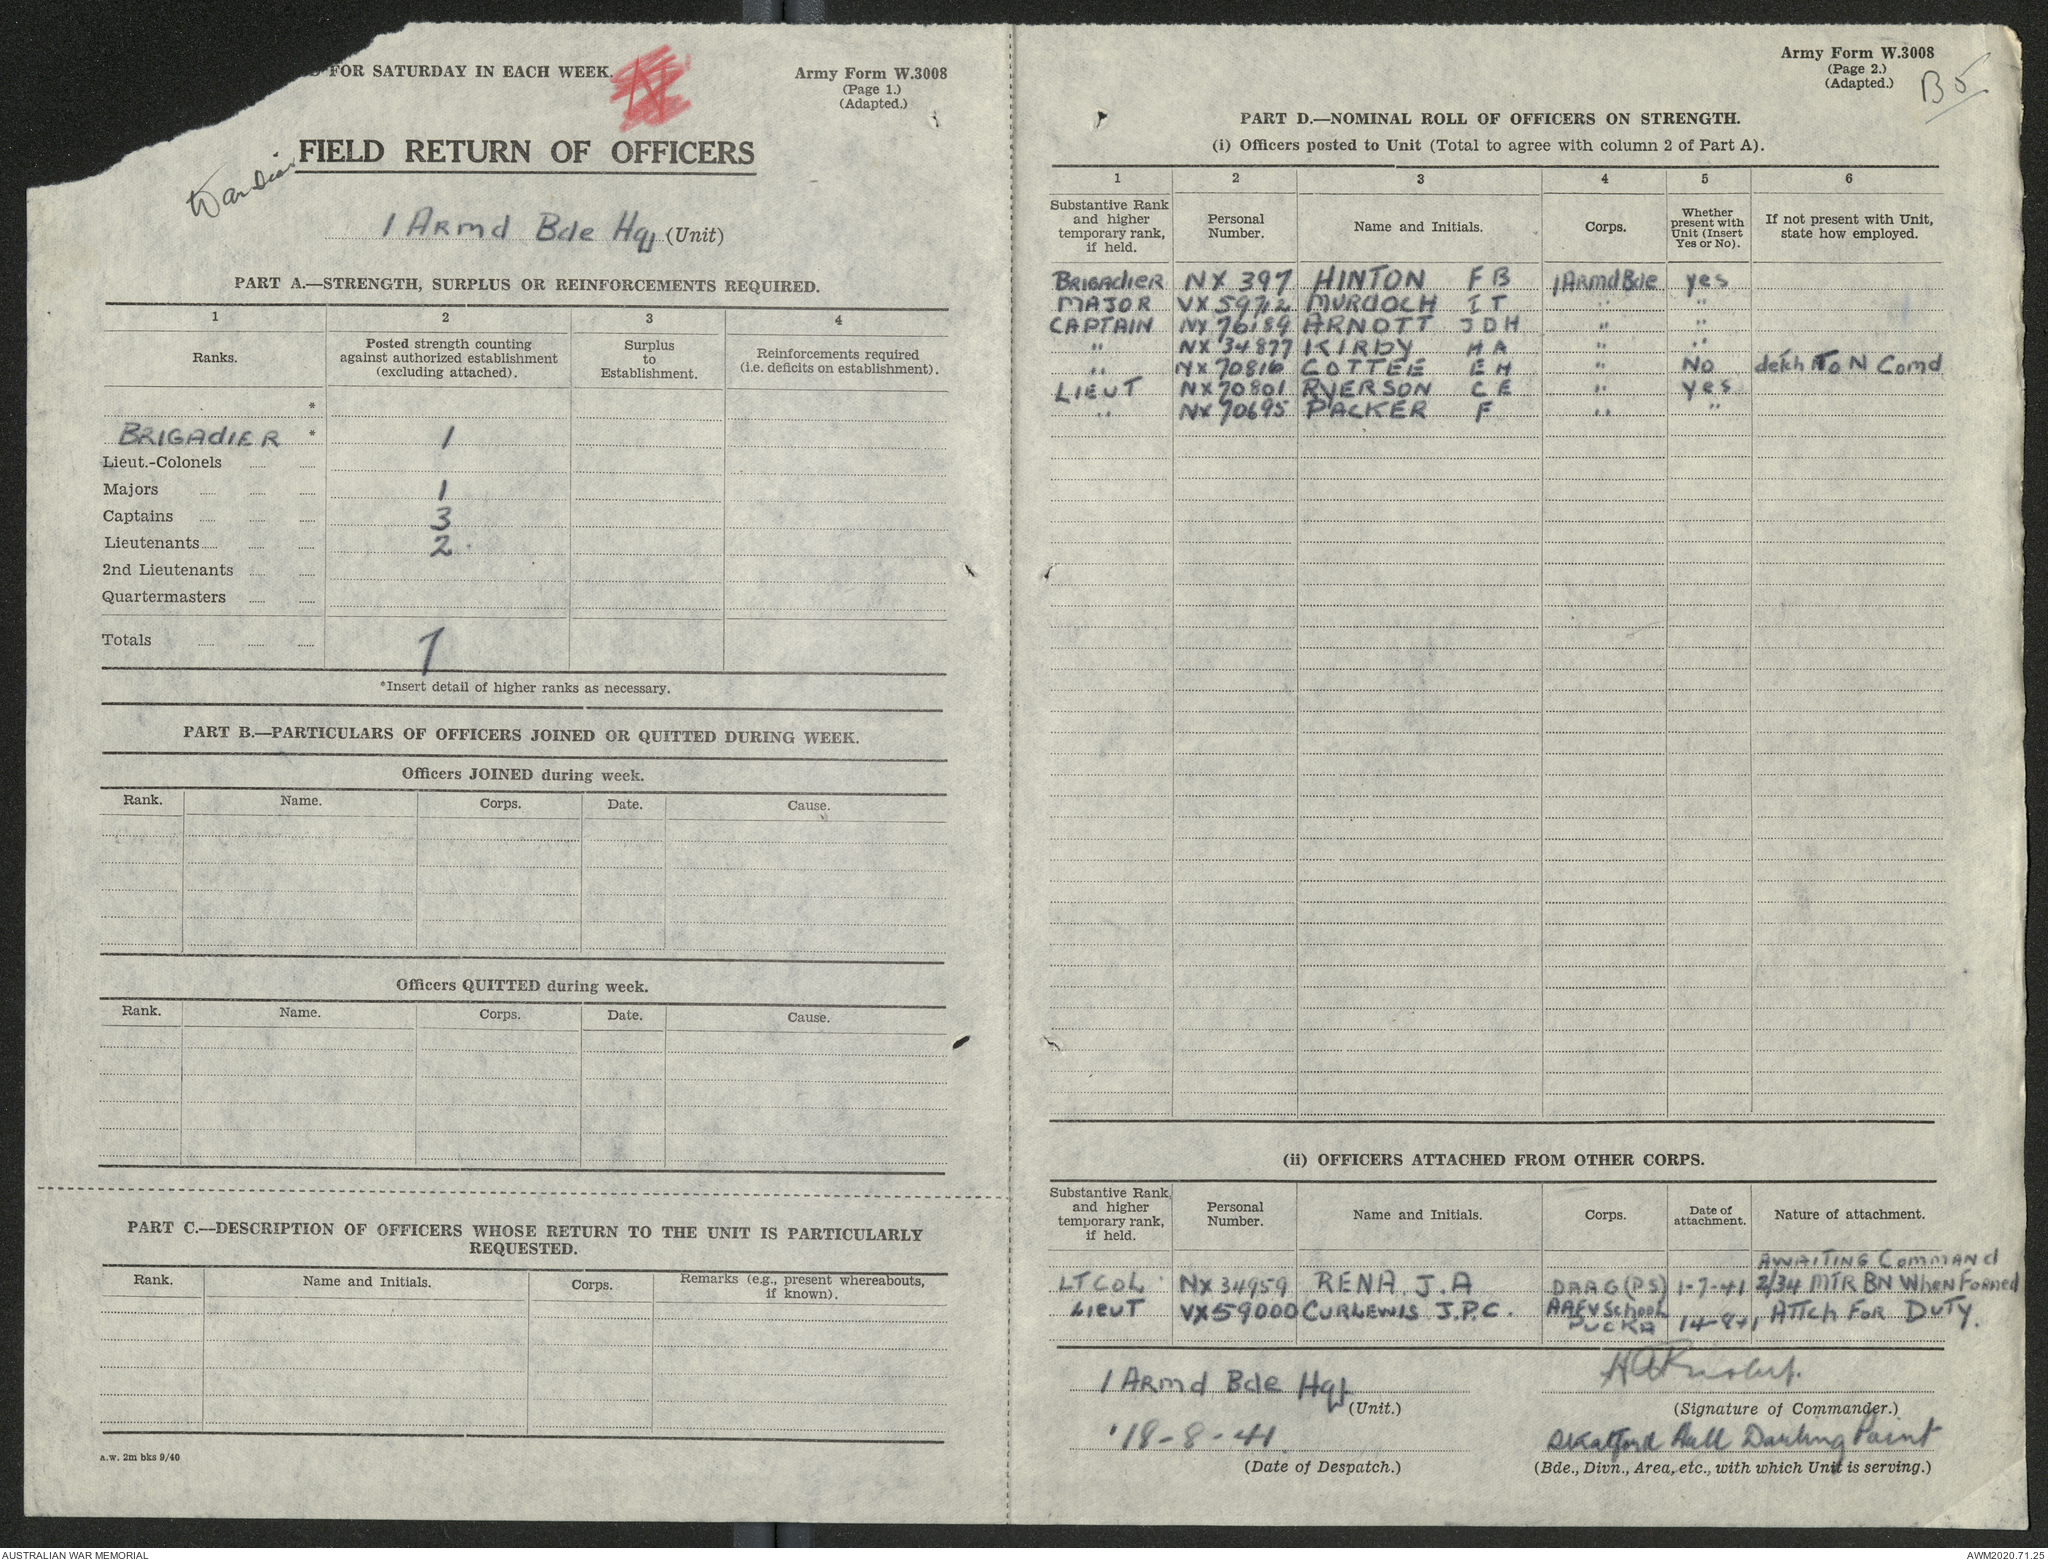 FOR SATURDAY IN EACH WEEK.
Army Form W.3008
(Page 1.)
(Adapted.)
FIELD RETURN OF OFFICERS
1 ARmd Bde Hqs (Unit)
PART A.—STRENGTH, SURPLUS OR REINFORCEMENTS REQUIRED.
1 2 3 4
Ranks. Posted strength counting against authorized establishment (excluding attached). Surplus to Establishment. Reinforcements required (i.e. deficits on establishment).
*
BRIGAdIER * 1
Lieut.-Colonels
Majors 1
Captains 3
Lieutenants 2
2nd Lieutenants
Quartermasters
Totals 7
*Insert detail of higher ranks as necessary.
PART B.—PARTICULARS OF OFFICERS JOINED OR QUITTED DURING WEEK.
Officers JOINED during week.
Rank. Name. Corps. Date. Cause.
Officers QUITTED during week.
Rank. Name. Corps. Date. Cause.
PART C.—DESCRIPTION OF OFFICERS WHOSE RETURN TO THE UNIT IS PARTICULARLY
REQUESTED.
Rank. Name and Initials. Corps. Remarks (e.g., present whereabouts, if known).
a.w. 2m bks 9/40
Army Form W.3008
(Page 2.)
(Adapted.)
B5
PART D.—NOMINAL ROLL OF OFFICERS ON STRENGTH.
(i) Officers posted to Unit (Total to agree with column 2 of Part A).
1 2 3 4 5 6
Substantive Rank and higher temporary rank, if held. Personal Number. Name and Initials. Corps. Whether present with Unit (Insert Yes or No). If not present with Unit, state how employed.
BRIGAdIER NX 397 HINTON F B 1 ARmd Bde yes
MAJOR VX 59712 MURDOCH I T " "
CAPTAIN NX 76189 ARNOTT J D H " "
" NX 34877 KIRBY H A " "
" NX 70816 COTTEE E H " No detch To N Comd
LIEUT NX 70801 RYERSON C E " yes
" NX 70695 PACKER F " "
(ii) OFFICERS ATTACHED FROM OTHER CORPS.
Substantive Rank and higher temporary rank, if held. Personal Number. Name and Initials. Corps. Date of attachment. Nature of attachment.
AWAITING Command
LT COL NX 34959 RENA J.A DAAG (P.S) 1-7-41 2/34 MTR BN When Formed
LIEUT VX59000 CURLEWIS J.P.C. AAFV School ATTch FOR DUTY.
PUCKA 14-8-41
1 ARmd Bde Hqs
(Unit.) (Signature of Commander.)
18-8-41 Hall Darling Point
(Date of Despatch.) (Bde., Divn., Area, etc., with which Unit is serving.)
AUSTRALIAN WAR MEMORIAL
AWM2020.71.25